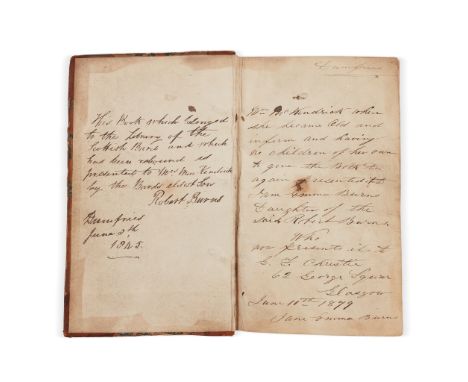 This Book which belonged
to the Library of the
Scottish Bard and which
has been rebound is
presented to Mrs
by the Bards eldest Son
Robert Burns
Dumfries
June 8th
1845.
Dumfries
Mrs McKendrick when
she became Old and
infirm and having
no children of her own
to give the Book to
again presented it to
Jane Emma Burns
Daughter of the
said Robert Burns
Who
now presents it to
Christie
62 George Square
Glasgow
June 11th 1879
Jane Emma Burns